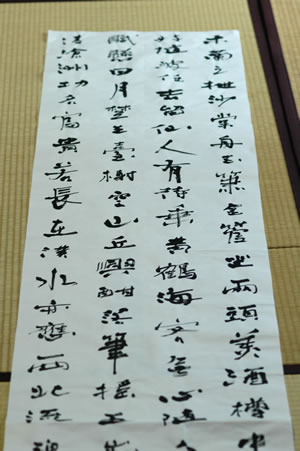 木蘭之枻沙棠舟玉簫金管坐兩頭美酒樽中
妓隨波任去留仙人有待乘黃鶴海客無心隨
賦懸日月楚王臺榭空山丘興酣落筆搖五
凌滄洲功名富貴若長在漢水亦應西北流